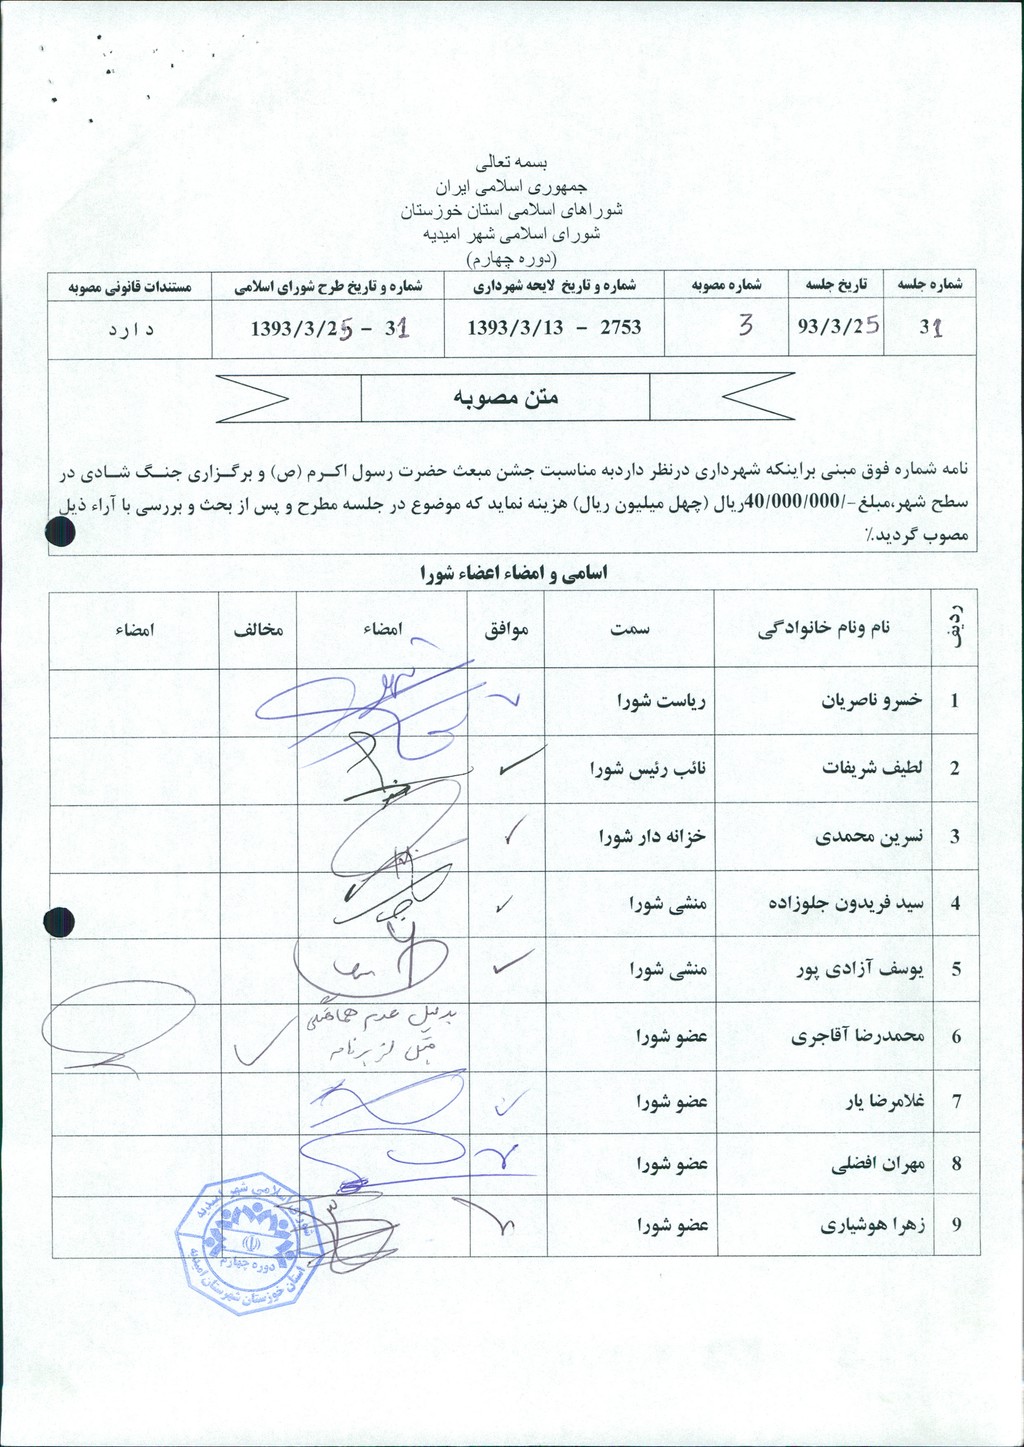 بسمه تعالی
جمهوری اسلامی ایران
شوراهای اسلامی استان خوزستان
شورای اسلامی شهر امیدیه
(دوره چهارم)
شماره جلسه تاریخ جلسه شماره مصوبه شماره و تاریخ لایحه شهرداری شماره و تاریخ طرح شورای اسلامی مستندات قانونی مصوبه
31 93/3/25 3 2753 - 1393/3/13 31 - 1393/3/25 دارد
متن مصوبه
نامه شماره فوق مبنی براینکه شهرداری درنظر داردبه مناسبت جشن مبعث حضرت رسول اکرم (ص) و برگزاری جنگ شادی در
سطح شهر،مبلغ -/40/000/000ریال (چهل میلیون ریال) هزینه نماید که موضوع در جلسه مطرح و پس از بحث و بررسی با آراء ذیل
مصوب گردید.٪
اسامی و امضاء اعضاء شورا
ردیف نام ونام خانوادگی سمت موافق امضاء مخالف امضاء
1 خسرو ناصریان ریاست شورا
2 لطیف شریفات نائب رئیس شورا
3 نسرین محمدی خزانه دار شورا
4 سید فریدون جلوزاده منشی شورا
5 یوسف آزادی پور منشی شورا
6 محمدرضا آقاجری عضو شورا بدلیل عدم هماهنگی
قبل از برنامه
7 غلامرضا یار عضو شورا
8 مهران افضلی عضو شورا
9 زهرا هوشیاری عضو شورا
شورای اسلامی شهر امیدیه
دوره چهارم
استان خوزستان شهرستان امیدیه